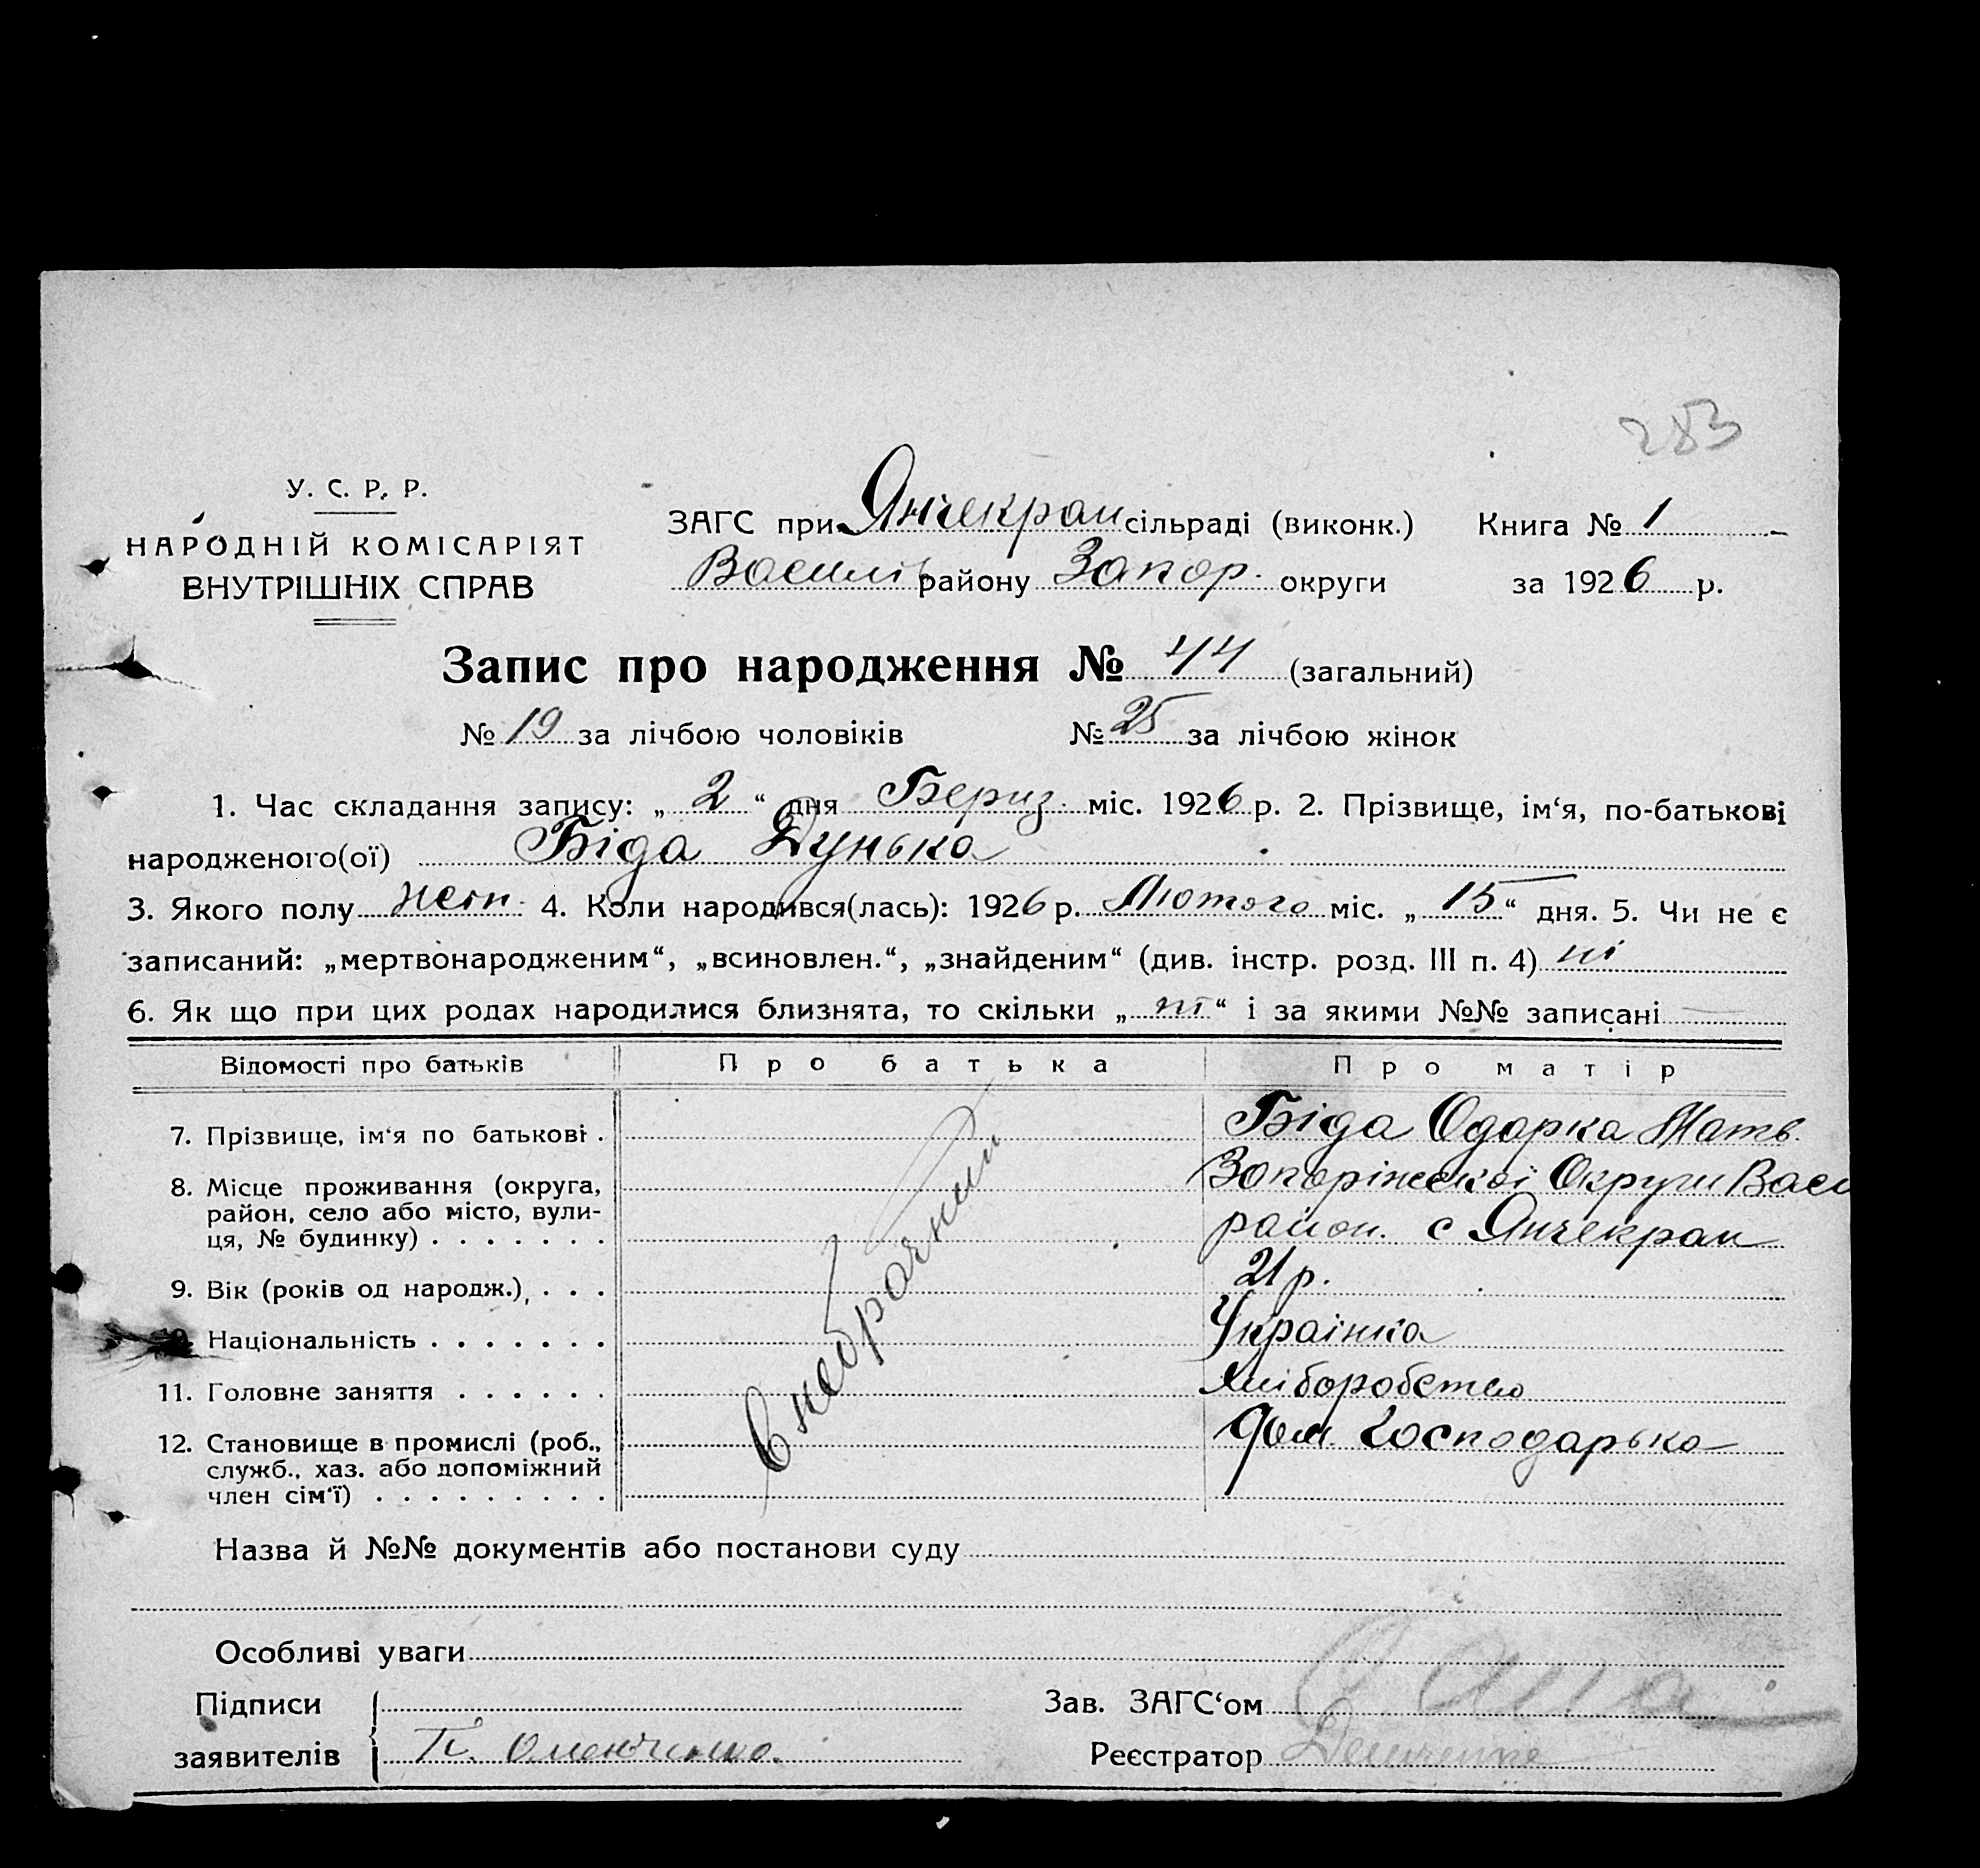 283
У. С. Р. Р.
НАРОДНІЙ КОМІСАРІЯТ
ВНУТРІШНІХ СПРАВ
ЗАГС при Янчекрак сільраді (виконк.) Книга № 1
Василів району Запор. округи за 1926 р.
Запис про народження № 44 (загальний)
№ 19 за лічбою чоловіків № 25 за лічбою жінок
1. Час складання запису: „ 2 “ дня Бериз. міс. 1926 р. 2. Прізвище, ім‘я, по-батькові
народженого(ої) Біда Дунька
3. Якого полу жен. 4. Коли народився(лась): 1926 р. Лютого міс. „ 15 “ дня. 5. Чи не є
записаний: „мертвонародженим“, „всиновлен.“, „знайденим“ (див. інстр. розд. III п. 4) ні
6. Як що при цих родах народилися близнята, то скільки „ ні “ і за якими №№ записані
Відомості про батьків Про батька Про матір
7. Прізвище, ім‘я по батькові . Біда Одарка Матв.
8. Місце проживання (округа, Запоріжської Округи Васи
район, село або місто, вули- район. с Янчекрак
ця, № будинку) . . . . . . .
9. Вік (років од народж.), . . . 21 р.
Національність . . . . . . . Українка
11. Головне заняття . . . . . . Хліборобство
12. Становище в промислі (роб., Дом. господарька
служб., хаз. або допоміжний
член сім‘ї) . . . . . . . . .
внебрачний
Назва й №№ документів або постанови суду
Особливі уваги
Підписи Зав. ЗАГС‘ом
заявителів Реєстратор